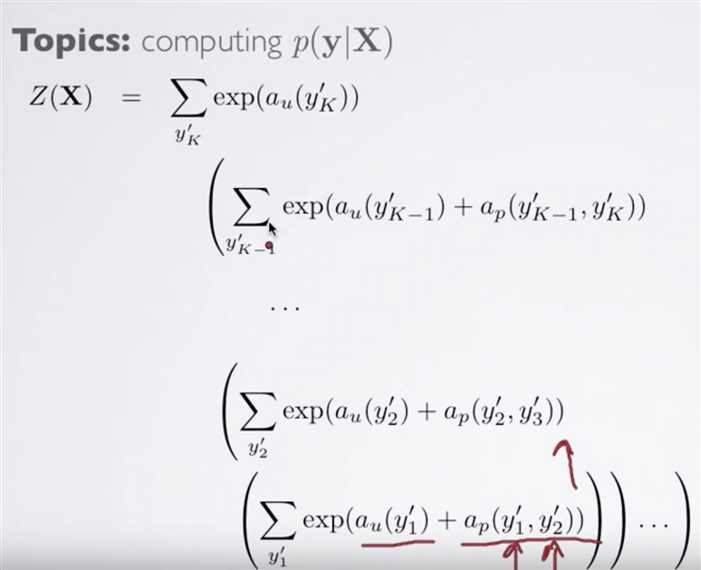 Topics: computing p(y|X)
Z(X) = ∑_{y′_K} exp(a_u(y′_K))
( ∑_{y′_{K−1}} exp(a_u(y′_{K−1}) + a_p(y′_{K−1}, y′_K))
...
( ∑_{y′_2} exp(a_u(y′_2) + a_p(y′_2, y′_3))
( ∑_{y′_1} exp(a_u(y′_1) + a_p(y′_1, y′_2)) ) ) ... )